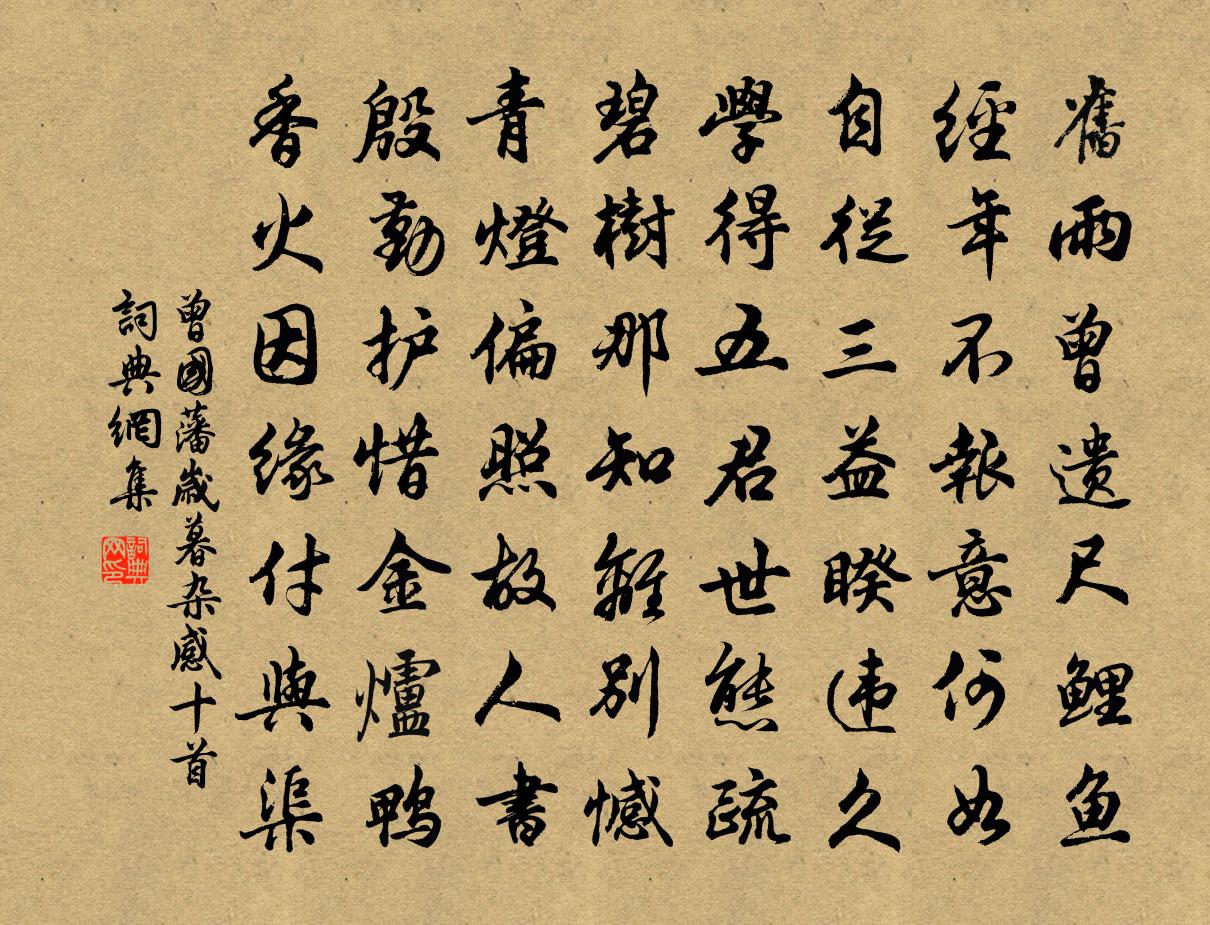 舊雨曾遗尺鯉魚
經年不報意何如
自從三益睽违久
學得五君世態疏
碧樹那知離別憾
青燈偏照故人書
殷勤护惜金爐鴨
香火因缘付與渠
曾國藩歲暮杂感十首
詞典網集
詞典网印